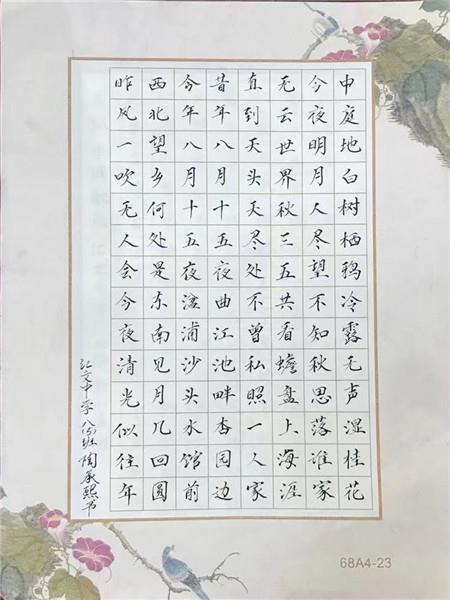 中庭地白树栖鸦冷露无声湿桂花
今夜明月人尽望不知秋思落谁家
无云世界秋三五共看蟾盘上海涯
直到天头天尽处不曾私照一人家
昔年八月十五夜曲江池畔杏园边
今年八月十五夜湓浦沙头水馆前
西北望乡何处是东南见月几回圆
昨风一吹无人会今夜清光似往年
汇文中学 八 班 陶承熙书
68A4-23